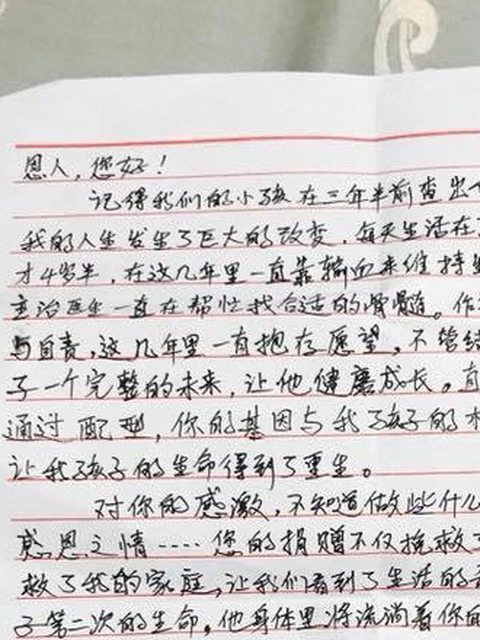 恩人，您好！
记得我们的小孩在三年半前查出
我的人生发生了巨大的改变，每天生活在
才4岁半，在这几年里一直靠输血来维持生
主治医生一直在帮忙找合适的骨髓。作
与自责，这几年里一直抱存愿望，不管结
子一个完整的未来，让他健康成长。直
通过配型，你的基因与我孩子的
让我孩子的生命得到了重生。
对你的感激，不知道做些什么
感恩之情····您的捐赠不仅挽救了
救了我的家庭，让我们看到了生活的
子第二次的生命，他身体里将流淌着你的